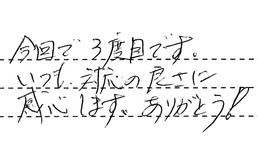 今回で3度目です。
いつも対応の良さに
感心します。ありがとう!